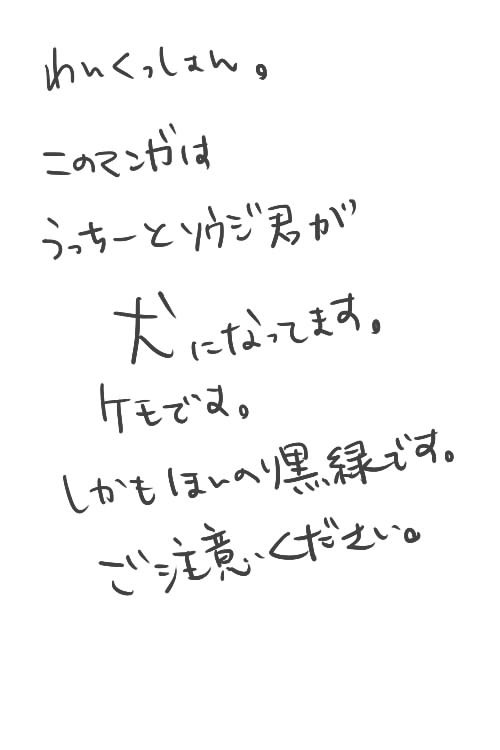 わんくっしょん。
このマンガは
うっちーとソウジ君が
犬になってます。
ケモです。
しかもほんのり黒緑です。
ご注意ください。